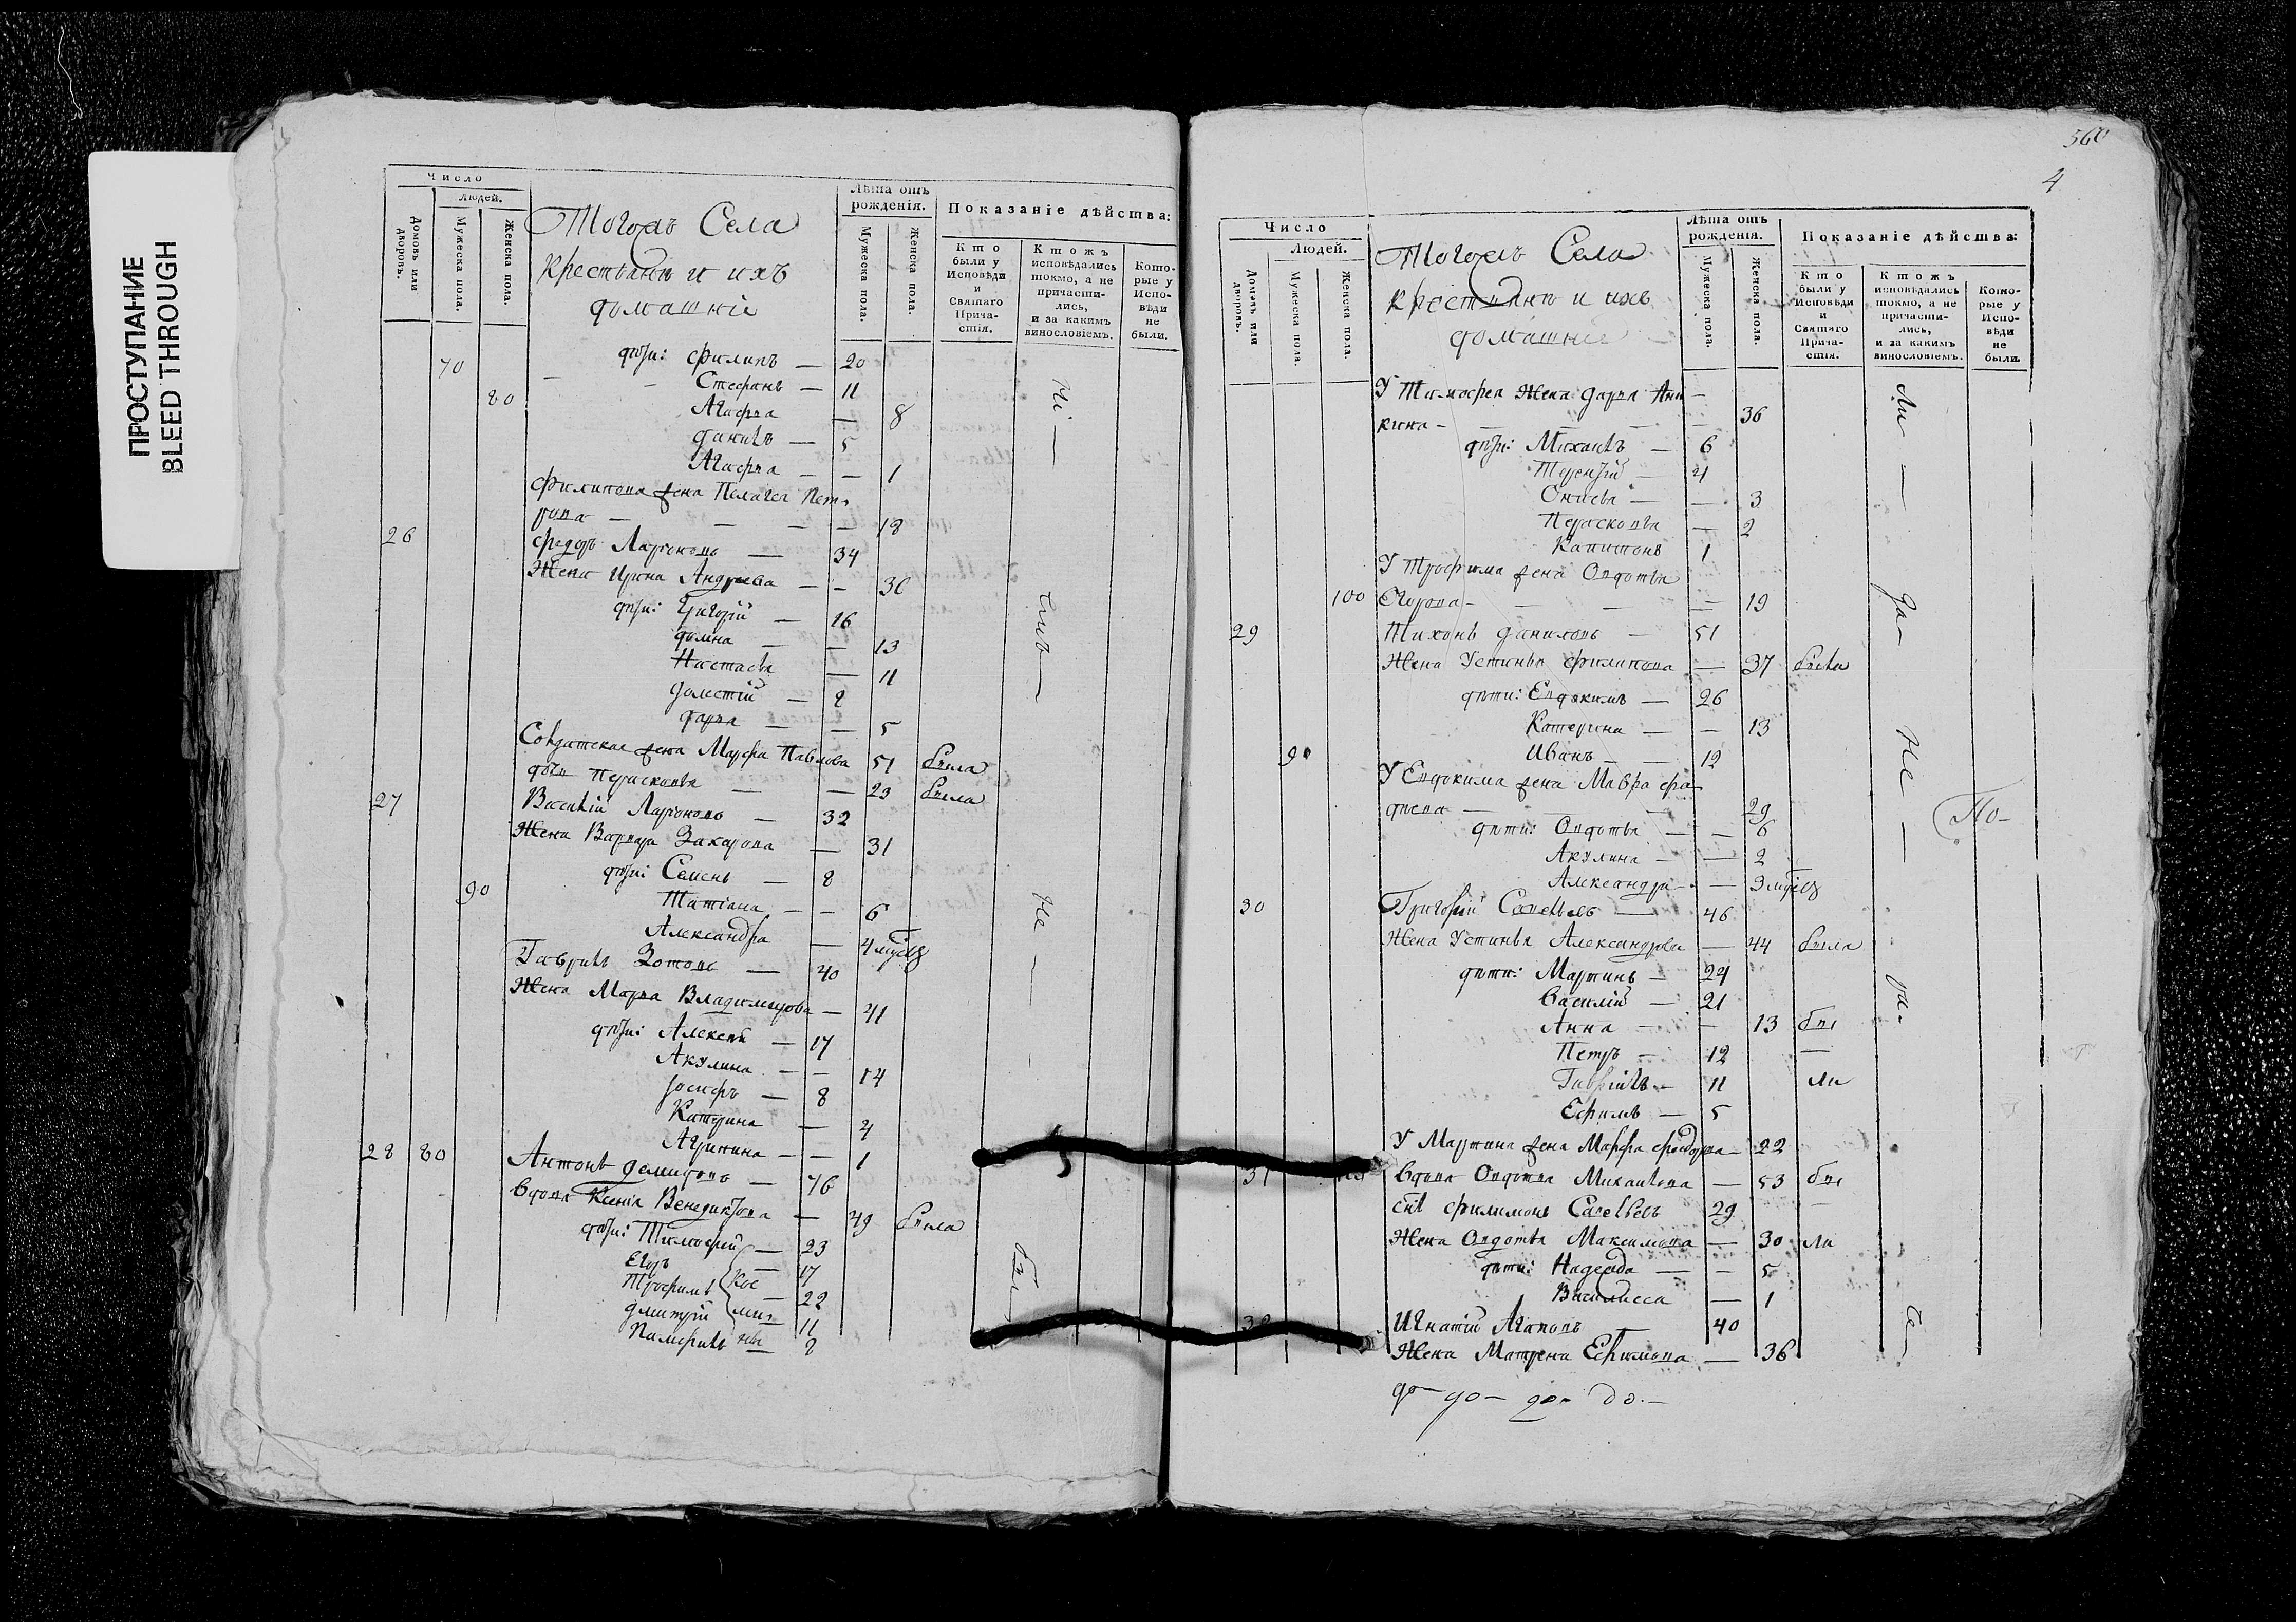 ПРОСТУПАНИЕ
BLEED THROUGH
Число
Людей.
Домовъ или дворовъ.
Мужеска пола.
Женска пола.
Тогожъ Села
Крестьянъ и ихъ
домашніе
Лѣта отъ рожденія.
Мужеска пола.
Женска пола.
Показаніе дѣйства:
Кто были у Исповѣди и Святаго Причастія.
Ктожъ исповѣдались токмо, а не причастились, и за какимъ винословіемъ.
Которые у Исповѣди не были.
70 дѣти: Филипъ — 20
Стефанъ — 11
80 Агафья — 8
Данилъ — 5
Агафья — — 1
Филипова жена Пелагея Пет-
рова — — — — 18
26 Федоръ Ларіоновъ — 34
Жена Ирина Андреева — — 36
дѣти: Григорій — 16
Домна — — 13
Настасья — 11
— 2
Дарья — — 5
Солдатская жена Марфа Павлова 51 была
дочь Парасковья — — 23 была
27 Василій Ларіоновъ — 32
Жена Варвара Захарова — 31
дѣти: Семенъ — 8
90 Татіана — — 6
Александра — 4 мѣсяц
Гаврилъ Зотовъ — 40
Жена Марья Владимирова — 41
дѣти: Алексѣй — 17
Акулина — — 14
Іосифъ — 8
Катерина — 4
Агрипина — — 1
28 80 Антонъ Демидовъ — 76
Вдова Ксенія Венедиктова — 49 была
дѣти: Тимофей — 23
Егоръ — 17
Трофимъ — 22
Дмитрій — 11
Памфилъ — 2
560
4
Число
Людей.
Домовъ или дворовъ.
Мужеска пола.
Женска пола.
Тогожъ Села
Крестьянъ и ихъ
домашние
Лѣта отъ рожденія.
Мужеска пола.
Женска пола.
Показаніе дѣйства:
Кто были у Исповѣди и Святаго Причастія.
Ктожъ исповѣдались токмо, а не причастились, и за какимъ винословіемъ.
Которые у Исповѣди не были.
У Тимофея жена Дарья Ани-
кина — — — 36
дѣти: Михаилъ — 6
Терентій — 4
— — 3
Парасковья — 2
Капитонъ 1
У Трофима жена Овдотья
100 Егорова — — — 19
29 Тихонъ Даниловъ — 51
Жена Устинья Филипова — 37 была
дѣти: Евдокимъ — 26
Катерина — — 13
90 Иванъ — — 12
У Евдокима жена Мавра Фа-
дѣева — — — 29
дѣти: Овдотья — — 6
Акулина — — 2
Александра — — 3 мѣсяц
30 Григорій Савельевъ — 46
Жена Устинья Александрова — 44 была
дѣти: Мартинъ — 24
Василій — 21
Анна — — 13 бы
Петръ — 12 —
Гаврилъ — 11 ли
Ефимъ — 5
У Мартина жена Марфа Федорова — 22
31 Вдова Овдотья Михайлова — 53 бы
сынъ Филимонъ Савельевъ 29 —
Жена Овдотья Максимова — 30 ли
дѣти: Надежда — — 5
Василисса — 1
Игнатій Агаповъ 40
Жена Матрена Ефимова — 36
По-
до- до- до- до.-